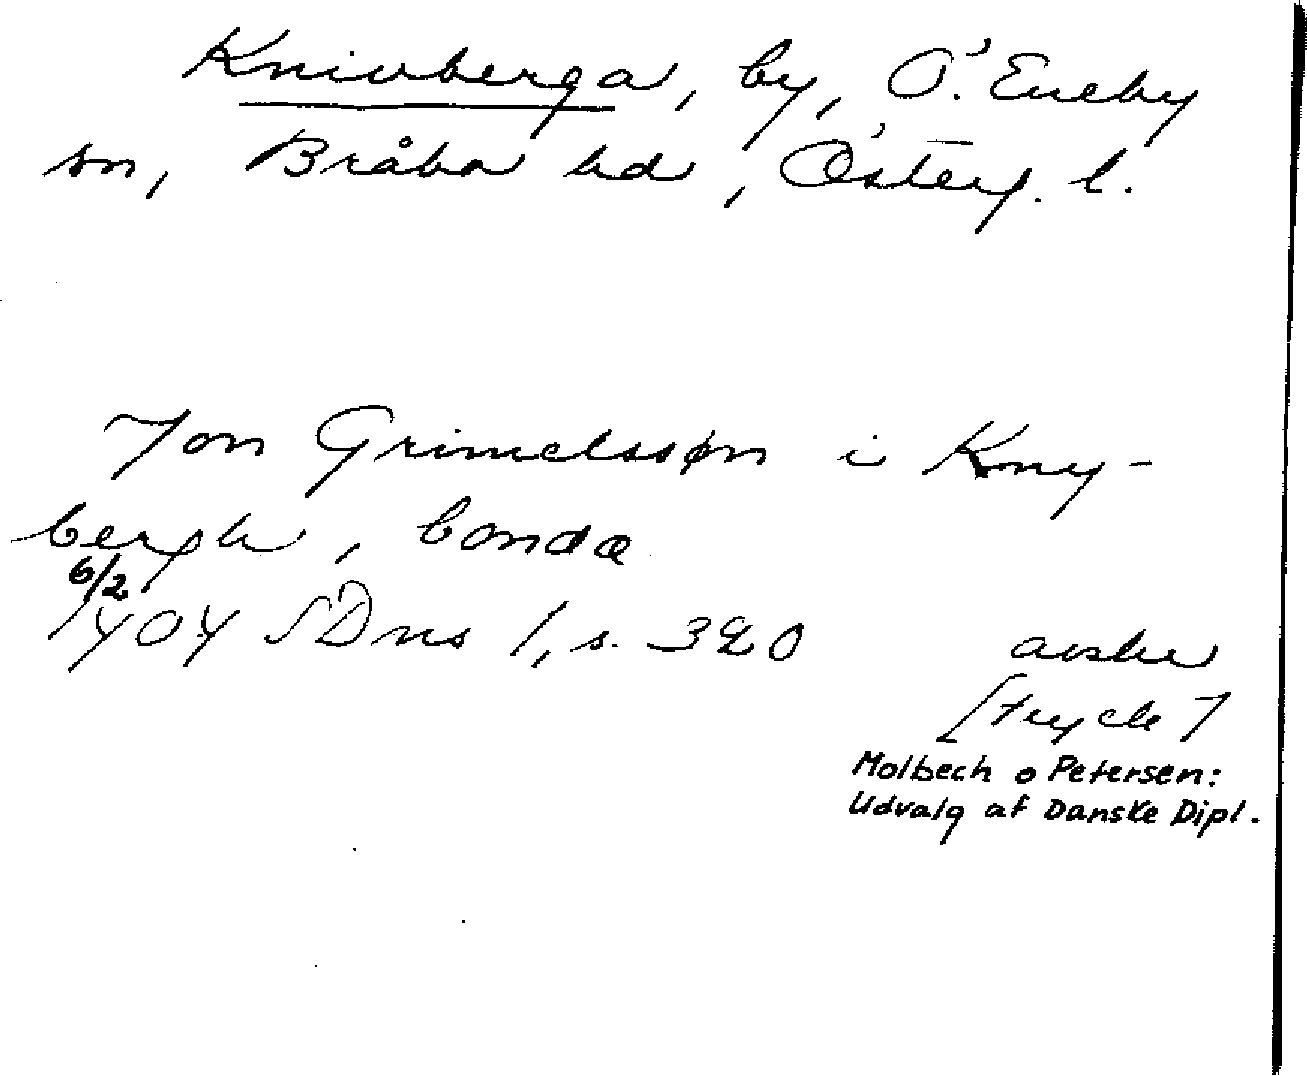 Knivberga, by, Ö. Eneby
sn, Bråbo hd, Österg. l.
Jon Grimelssøn i Kny-
bergh, bondæ
6/2
1404 SDns 1, s. 320
avskr
[tryck]
Molbech o Petersen:
Udvalg af Danske Dipl.